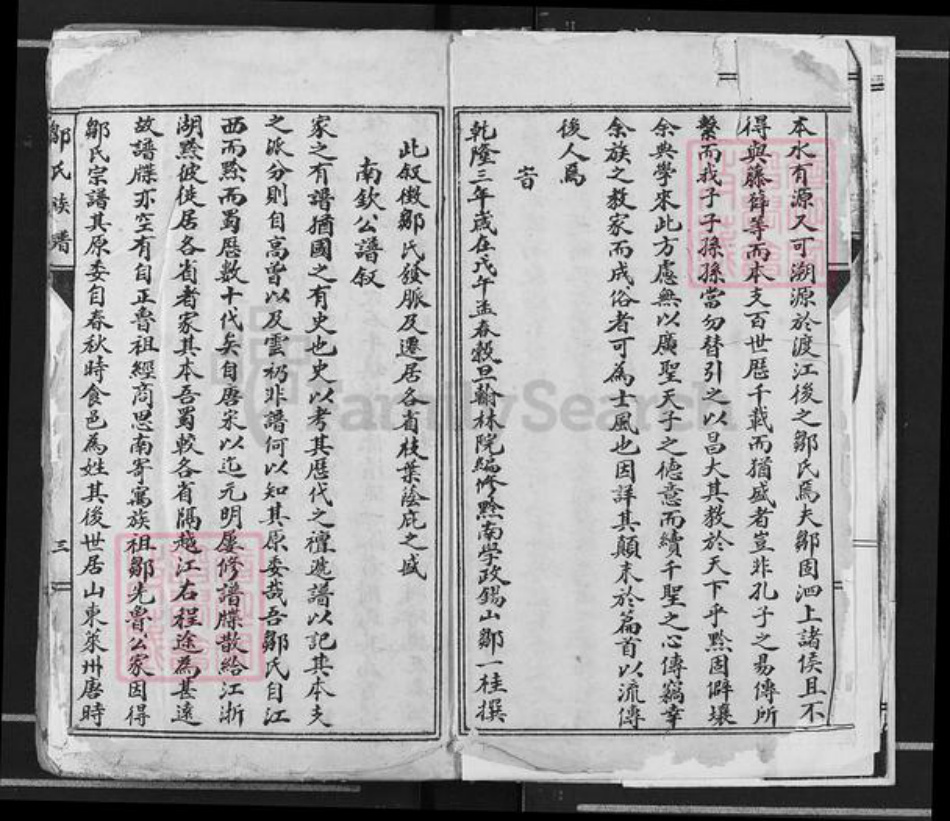 本水有源又可溯源於渡江後之鄒氏焉夫鄒固泗上諸侯且不
得與藤薛等而本支百世歷千載而猶盛者豈非孔子之易傳所
繫而我子子孫孫當勿替引之以昌大其教於天下乎黔固僻壤
余典學來此方慮無以廣聖天子之德意而續千聖之心傳竊幸
余族之教家而成俗者可為士風也因詳其顛末於篇首以流傳
後人焉
旹
乾隆三年歲在戊午孟春穀旦翰林院編修黔南学政錫山鄒一桂撰
此叙徵鄒氏發脈及遷居各省枝葉蔭庇之盛
南欽公譜叙
家之有譜猶國之有史也史以考其歷代之禪遞譜以記其本支
之派分則自高曾以及雲礽非譜何以知其原委哉吾鄒氏自江
西而黔而蜀歷數十代矣自唐宋以迄元明屢修譜牒散給江浙
湖黔彼徙居各省者家其本吾蜀較各省隔越江右程途為甚遠
故譜牒亦空有自正魯祖經商思南寄寓族祖鄒先魯公家因得
鄒氏宗譜其原委自春秋時食邑為姓其後世居山東萊州唐時
鄒氏族譜
三
FamilySearch